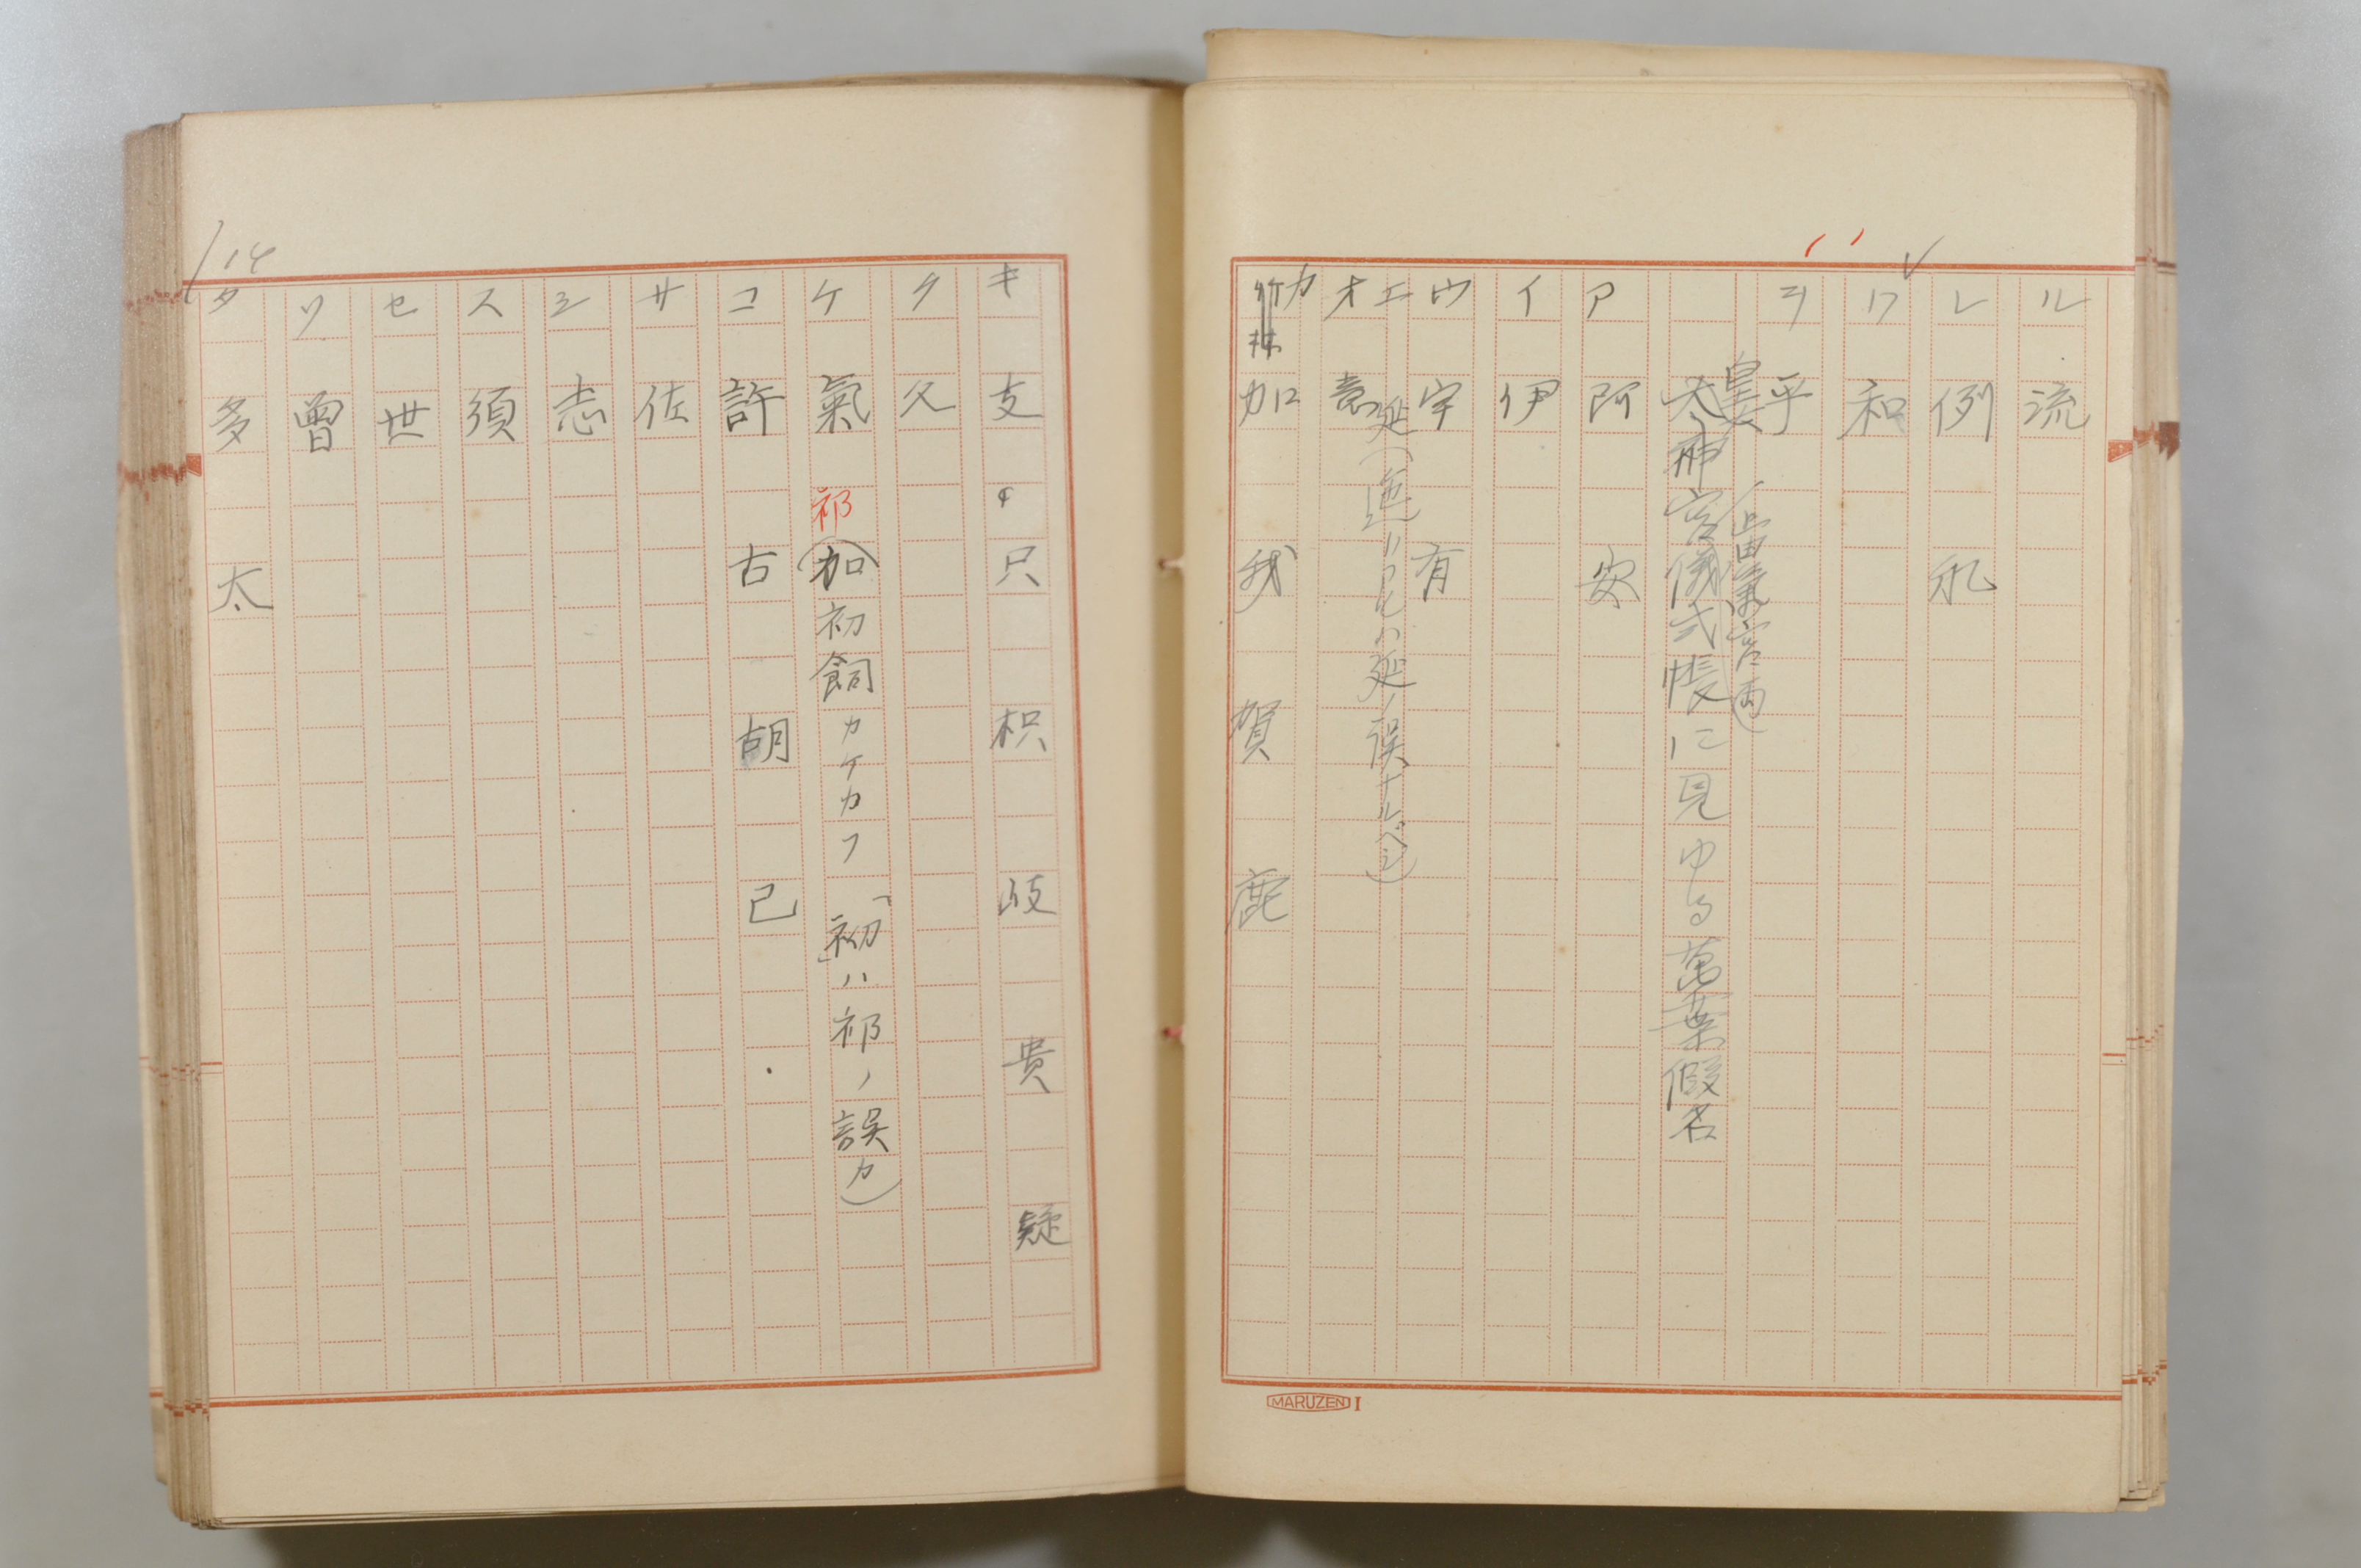 ル 流
レ 例 礼
ワ 和
ヲ 乎
皇太神宮儀式帳に見ゆる萬葉假名
(止由気宮両)
ア 阿 安
イ 伊
ウ 宇 有
エ 延
オ 意
カ 加 我 賀 鹿
MARUZEN I
キ 支 只 枳 岐 貴 疑
ク 久
ケ 氣 祁 (加初飼カケカフ「初」ハ祁ノ誤カ)
コ 許 古 胡 己
サ 佐
シ 志
ス 須
セ 世
ソ 曽
タ 多 太
14